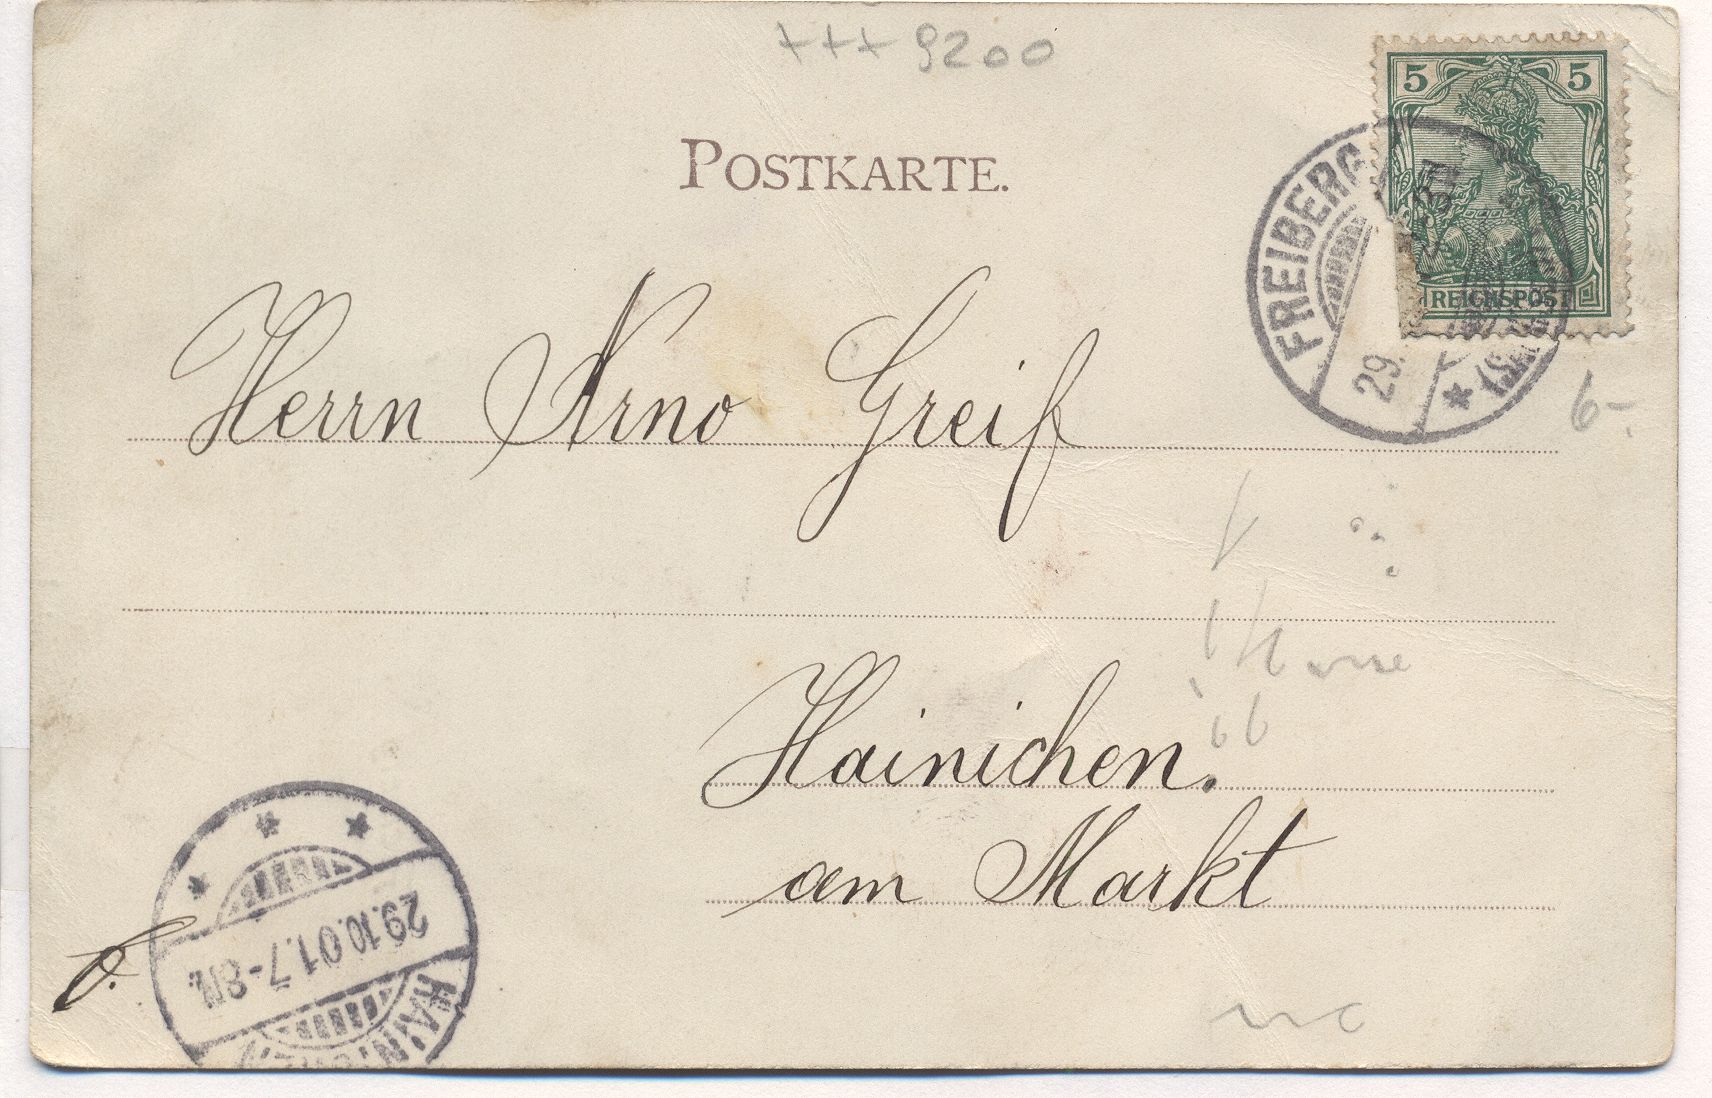 +++ 9200
POSTKARTE.
5 5
REICHSPOST
FREIBERG
29.
(S
6-
Herrn Arno Greif
Hainichen.
am Markt
29.10.01.7-8N.
HAINICHEN